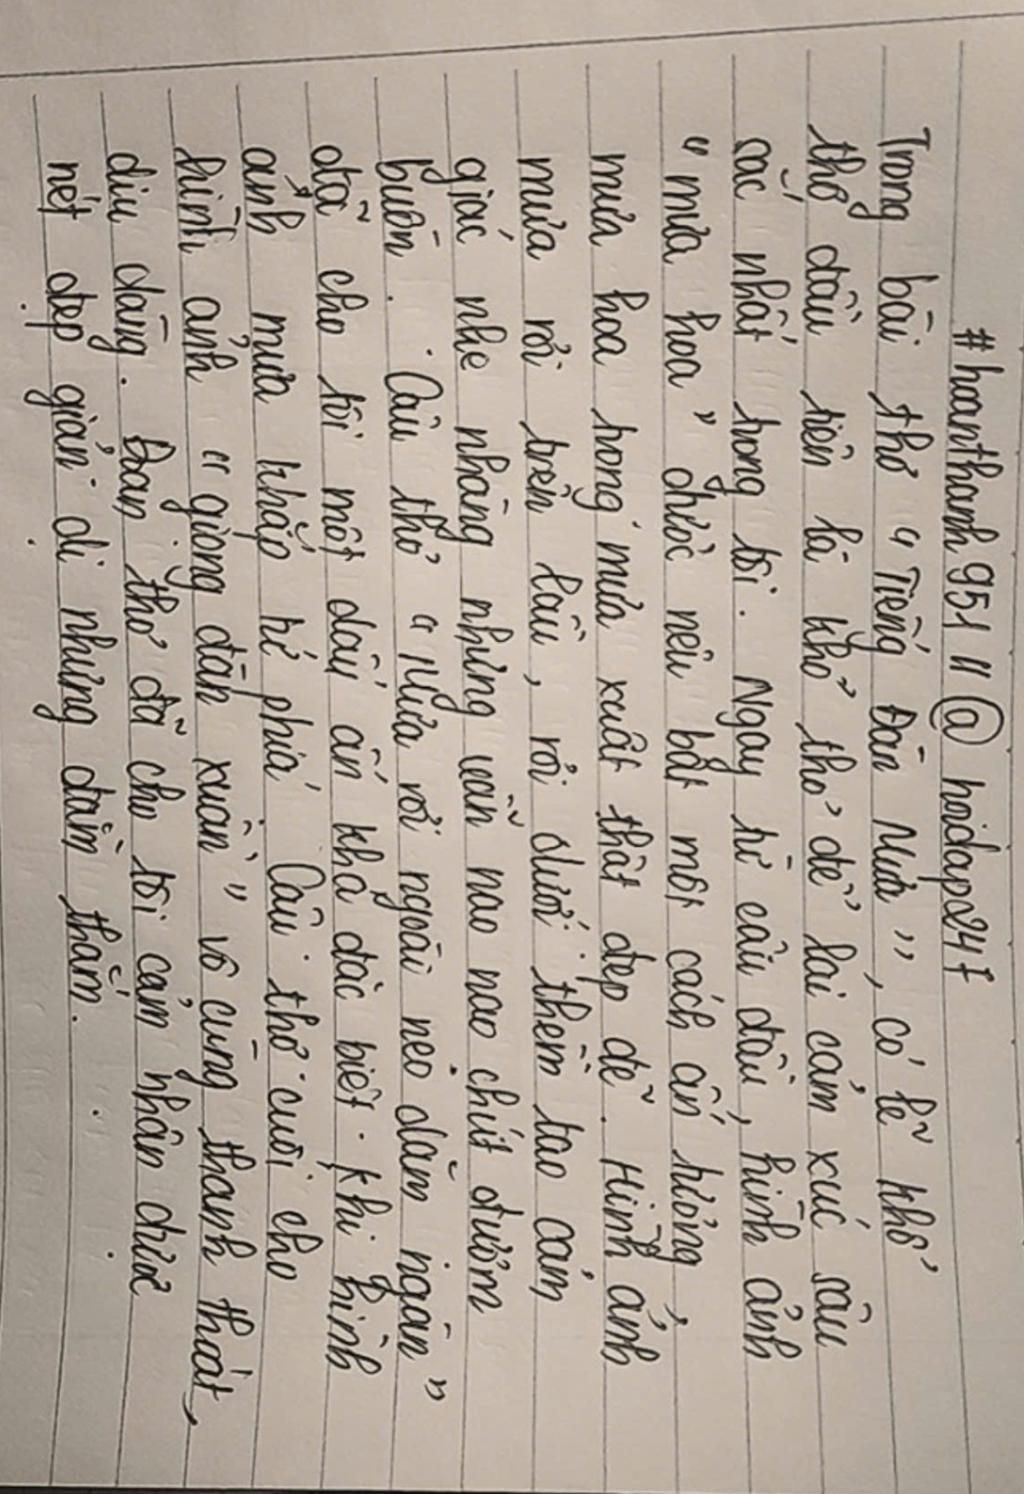 #hoanthanh951 || @ hoidap247
Trong bài thơ "Tiếng Đàn Mưa", có lẽ khổ
thơ đầu tiên là khổ thơ để lại cảm xúc sâu
sắc nhất trong tôi. Ngay từ câu đầu, hình ảnh
"mưa hoa" được nêu bật một cách ấn tượng,
mưa hoa trong mưa xuất thật đẹp đẽ. Hình ảnh
mưa rơi trên lầu, rơi dưới thềm tạo cảm
giác nhẹ nhàng nhưng vẫn nao nao chút đượm
buồn. Câu thơ "Mưa rơi ngoài nẻo dặm ngàn"
đã cho tôi một dấu ấn khá đặc biệt. Khi hình
ảnh mưa khắp tứ phía. Câu thơ cuối cho
hình ảnh "giọng đàn xuân" vô cùng thanh thoát,
dịu dàng. Đoạn thơ đã cho tôi cảm nhận được
nét đẹp giản dị nhưng đằm thắm.